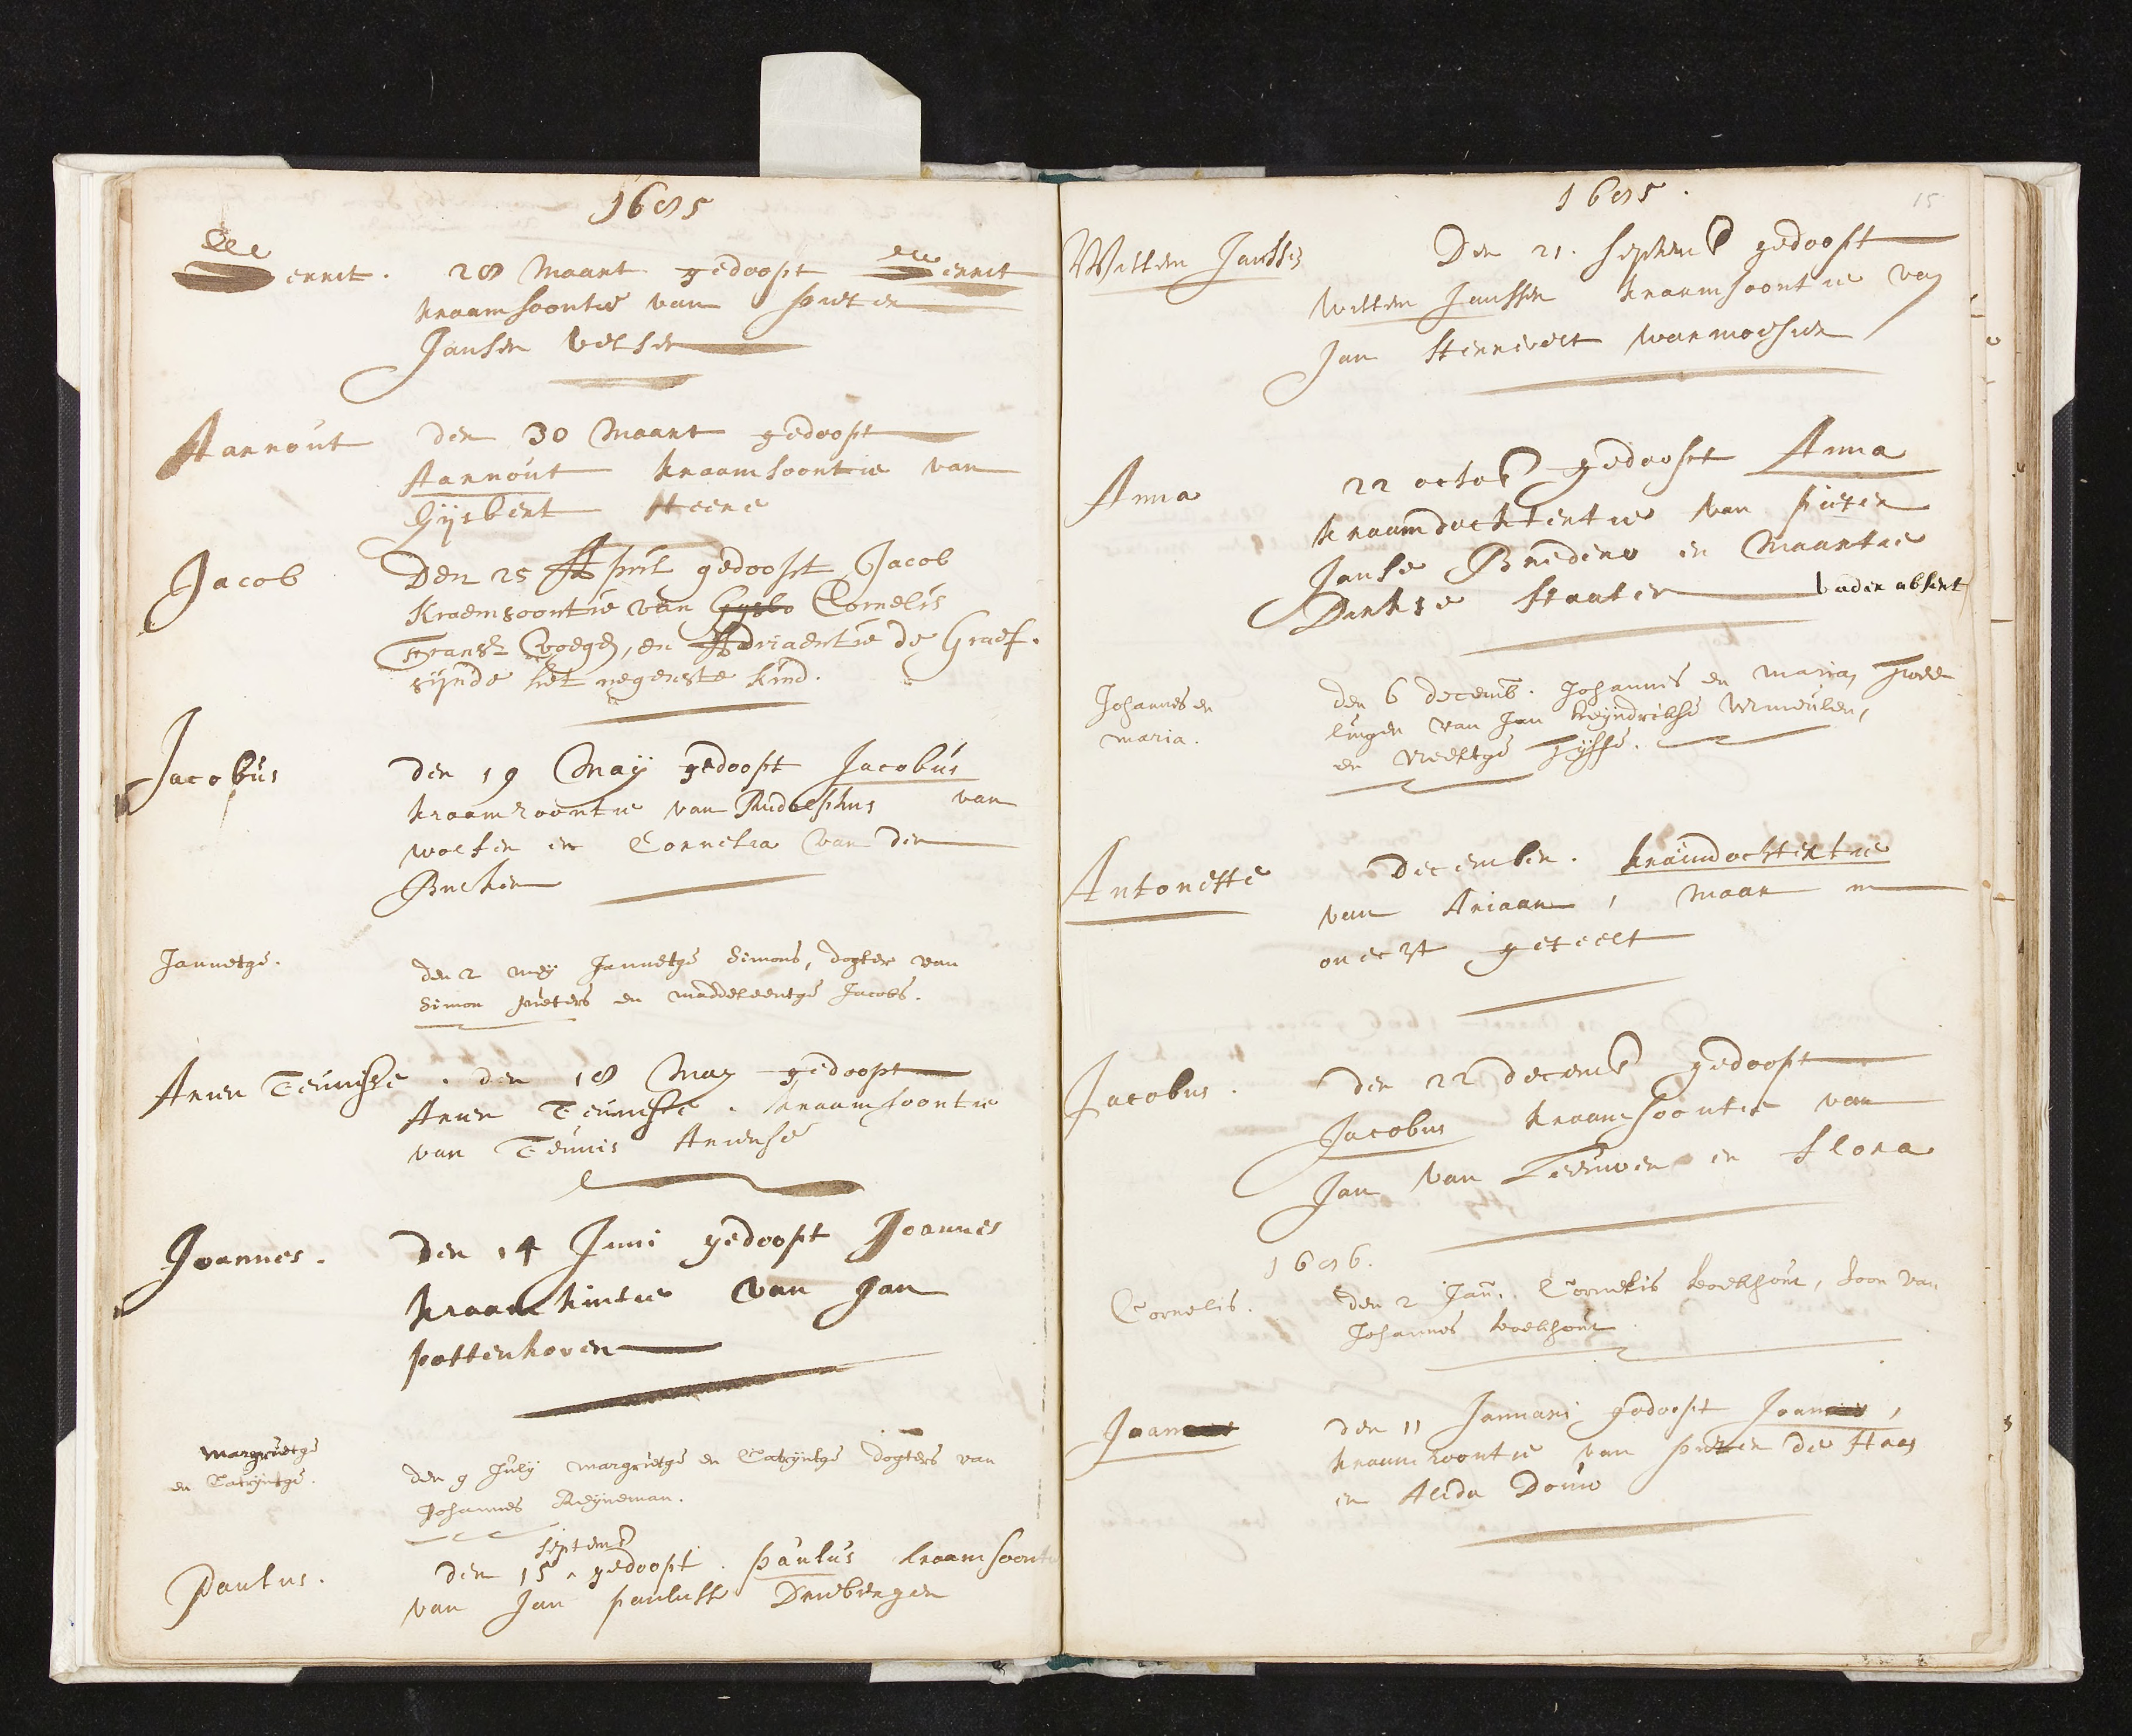 1685
Gerrit. 28 Maart gedoopt Gerrit
kraamsoontie van Pieter
Jansen Velsen
Aarnout den 30 Maart gedoopt
Aarnout kraamsoontie van
Gijsbert Heere
Jacob Den 25 April gedoopt Jacob
Kraemsoontie van Cornelis
Fransz Voegd, en Adriaentie de Graef.
sijnde het negenste kind.
Jacobus den 19 Maij gedoopt Jacobus
kraamzoontie van Rudolphus van
wolfen en Cornelia van den
Bucken
Jannetge. den 2 meij Jannetge Simons, dogter van
Simon pieters en maddeleentge Jacobs.
Arien Teunisse. den 18 May gedoopt
Arien Teunisse. kraamsoontie
van Teunis Ariense
Joannes. Den 14 Juni gedoopt Joannes
kraamkintie van Jan
pottenhoven
Margrietge
en Catrijntge. den 9 Julij margrietge en Catrijntge dogters van
Johannes Reijneman.
septemb
Paulus. den 15 gedoopt. paulus kraamsoonti
van Jan paulusse Driebergen
1685.
15
Willem Janssen Den 21. septemb gedoopt
Willem Janssen kraamsoontie van
Jan Hennevelt warmoesier
Anna 22 octob gedoopt Anna
kraamdochtertie van pieter
Janse Bredero en Maartie
Dirkse Staater vader absent
Johannes en
maria. den 6 decemb. Johannes en maria, twee
lingen van Jan heijndrikse Vermeulen,
en Neeltge Tijsse.
Antonette December. kraamdochtertie
van Ariaan, maar in
onecht geteelt
Jacobus. den 22 decemb gedoopt
Jacobus kraamsoontie van
Jan van Leeuwen en Flora
1686.
Cornelis. den 2 Jan. Cornelis boekhout, soon van
Johannes boekhout.
Joan den 11 Januari gedoopt Joan,
kraamzoontie van pieter de Haas
en Alida Douw